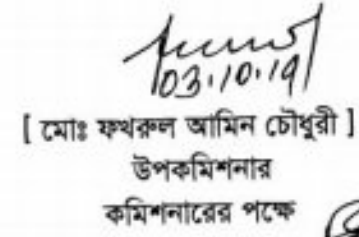 03.10.19
[ মোঃ ফখরুল আমিন চৌধুরী ]
উপকমিশনার
কমিশনারের পক্ষে